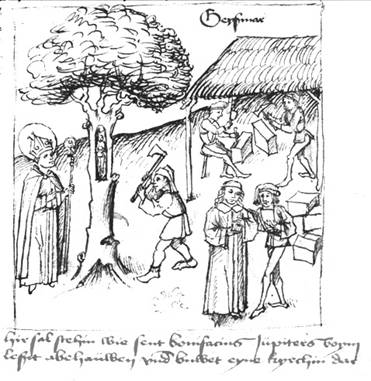 Geysmar
hir sal stehin wie sent bonifacius Jupiters boym
lesit abe hauwen vnd buwet eyne kyrchin dar